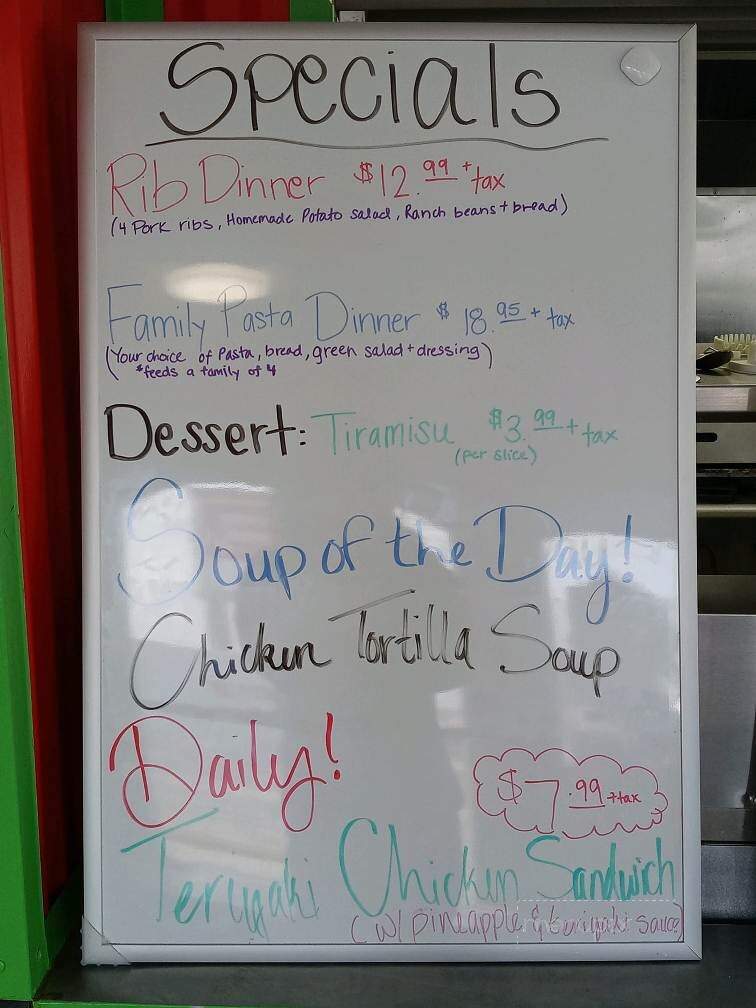 Specials
Rib Dinner $12.99 + tax
(4 Pork ribs, Homemade Potato salad, Ranch beans + bread)
Family Pasta Dinner $18.95 + tax
(Your choice of Pasta, bread, green salad + dressing)
*feeds a family of 4
Dessert: Tiramisu $3.99 + tax
(per slice)
Soup of the Day!
Chicken Tortilla Soup
Daily!
$7.99 + tax
Teryaki Chicken Sandwich
(w/ pineapple & teriyaki sauce)